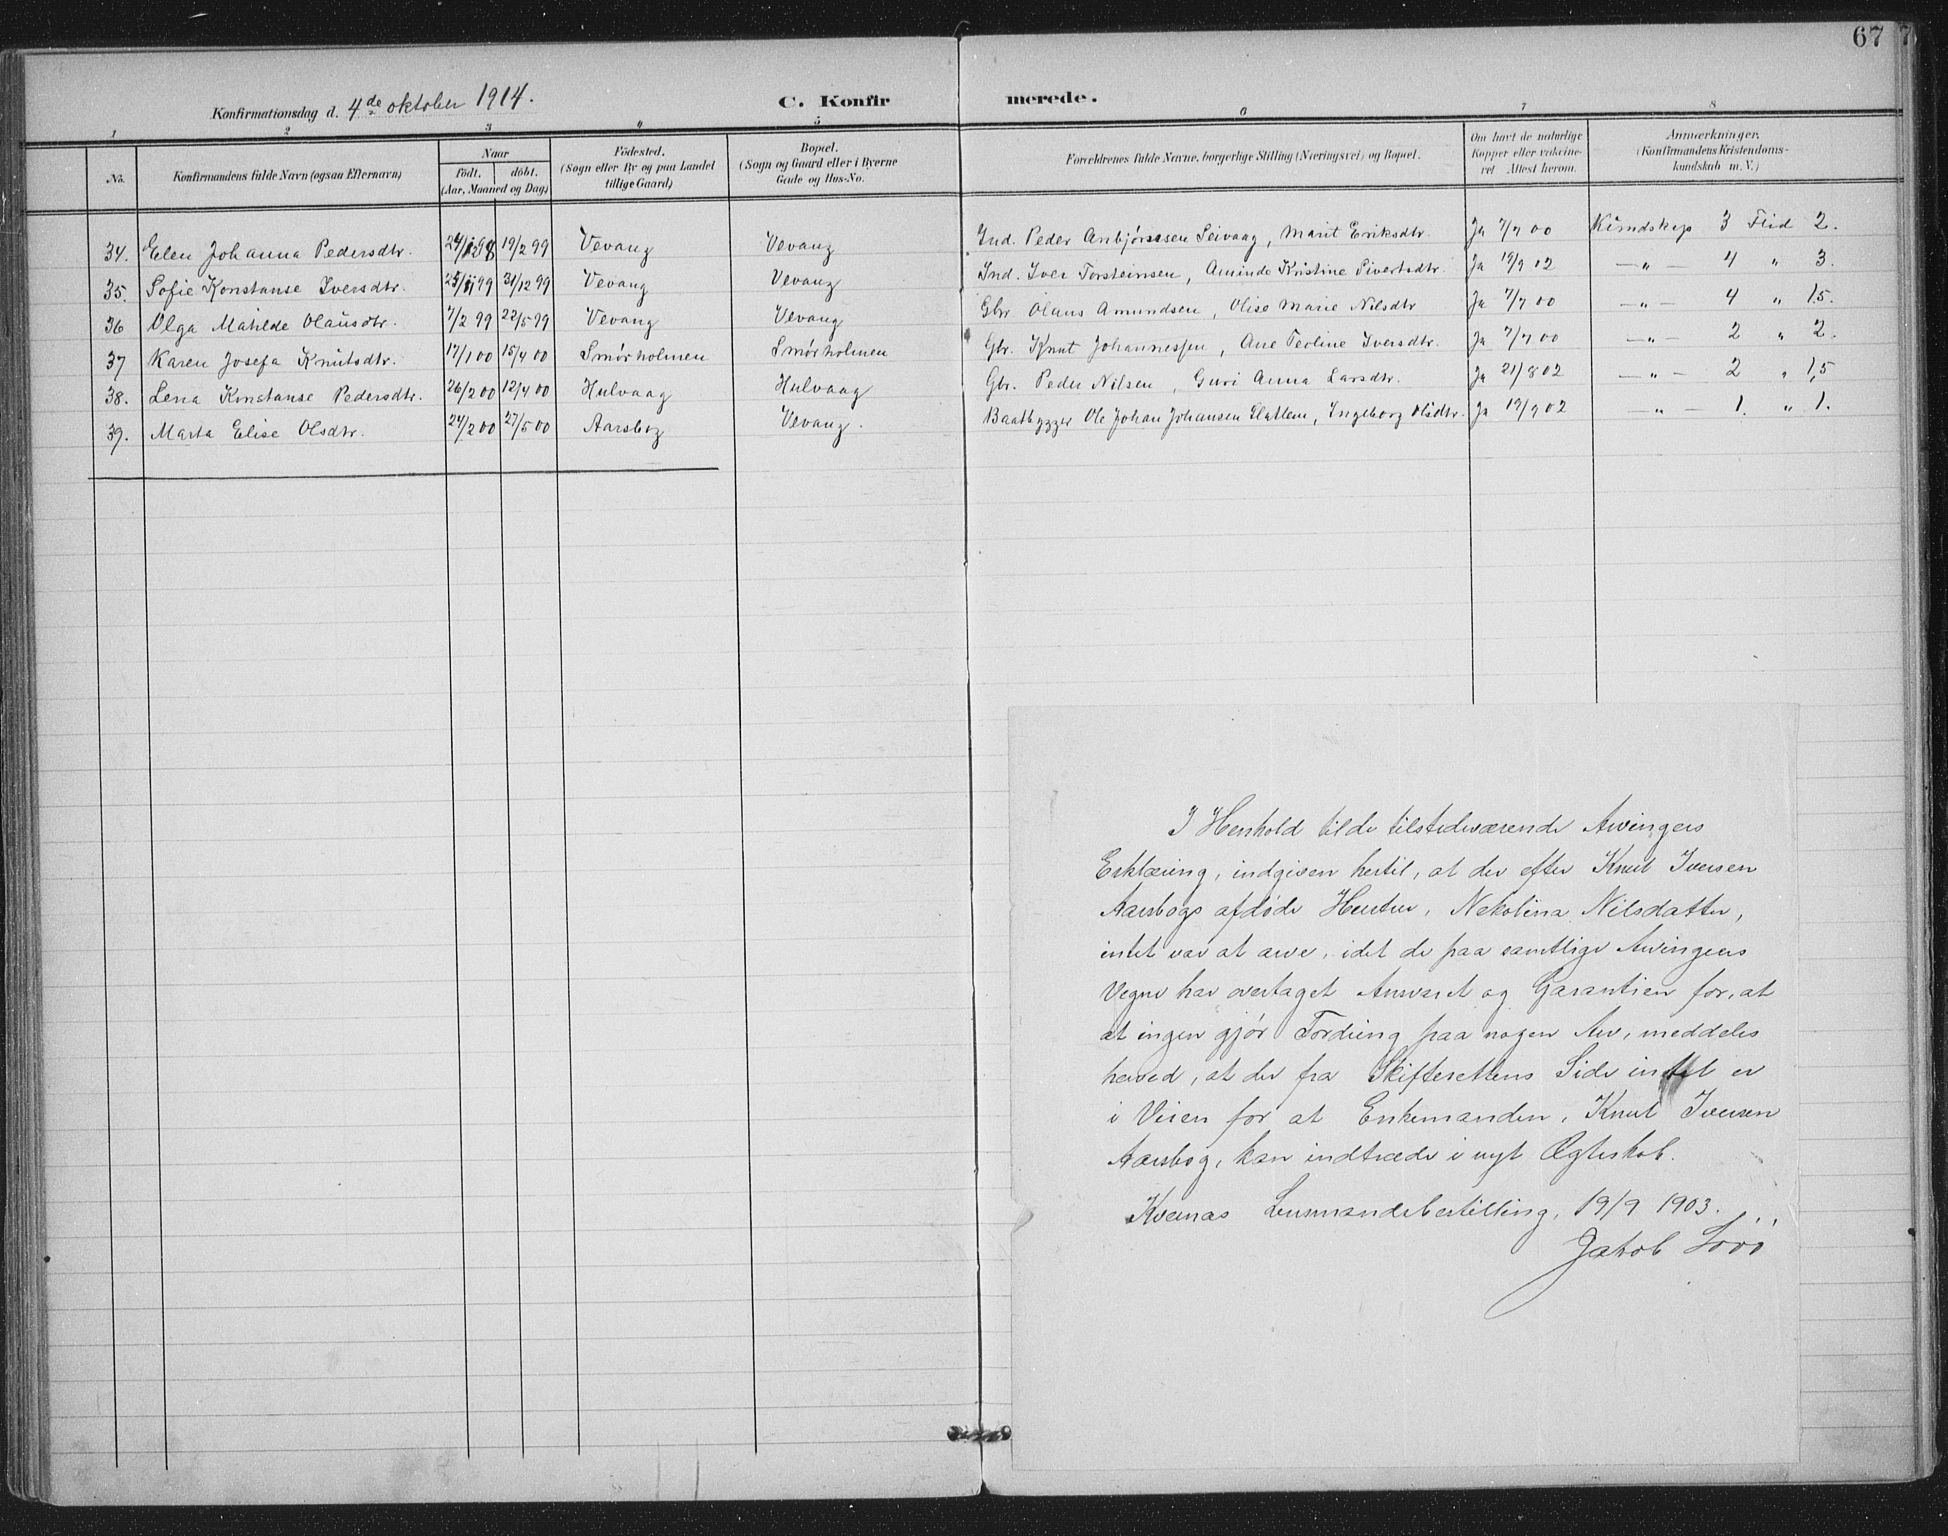 67
Konfirmationsdag d. 4de oktober 1914.
C. Konfirmerede.
1 2 3 4 5 6 7 8
No. | Konfirmandens fulde Navn (ogsaa Efternavn) | Naar födt. döbt. (Aar, Maaned og Dag) | Födested. (Sogn eller By og paa Landet tillige Gaard) | Bopæl. (Sogn og Gaard eller i Byerne Gade og Hus-No. | Forældrenes fulde Navne, borgerlige Stilling (Næringsvei) og Bopæl. | Om havt de naturlige Kopper eller vakcineret Attest herom. | Anmærkninger. (Konfirmandens Kristendomskundskab m. V.)
34. Elen Johanna Pedersdtr. 24/12 98 19/2 99 Vevang Vevang Ind. Peder Anbjørnsen Seivaag, Marit Eriksdtr. Ja 7/7 00 Kundskap 3 Flid 2.
35. Sofie Konstanse Iversdtr. 25/11 99 31/12 99 Vevang Vevang Ind. Iver Torsteinsen, Aminde Kristine Sivertsdtr. Ja 19/9 02 —„— 4 „ 3.
36 Olga Matilde Olausdtr. 7/2 99 22/5 99 Vevang Vevang Gbr Olaus Amundsen, Olise Marie Nilsdtr Ja 7/7 00 —„— 4 „ 1,5.
37 Karen Josefa Knutsdtr. 17/1 00 15/4 00 Smørholmen Smørholmen Gbr. Knut Johannessen, Ane Teoline Iversdtr. Ja 7/7 00 —„— 2 „ 2.
38. Lena Konstanse Pedersdtr. 26/2 00 12/4 00 Hulvaag Hulvaag Gbr. Peder Nilsen, Guri Anna Larsdtr. Ja 21/8 02 —„— 2 „ 1,5
39. Marta Elise Olsdtr. 24/2 00 27/5 00 Aarsbog Vevang. Baatbygger Ole Johan Johansen Slatlem, Ingeborg Olsdtr. Ja 19/9 02 „ — 1. „ 1.
I Henhold til de tilstedeværende Arvingers
Erklæring, indgiven hertil, at der efter Knut Iversen
Aarsbogs afdøde Hustru, Nekolina Nilsdatter,
intet var at arve, idet de paa samtlige Arvingers
Vegne har overtaget Ansvaret og Garantien for, at
at ingen gjør Fordring paa nogen Arv, meddeles
herved, at der fra Skifterettens Side intet er
i Veien for at Enkemanden, Knut Iversen
Aarsbog, kan indtræde i nyt Ægteskab.
Kvernes Lensmandsbestilling, 19/9 1903.
Jakob